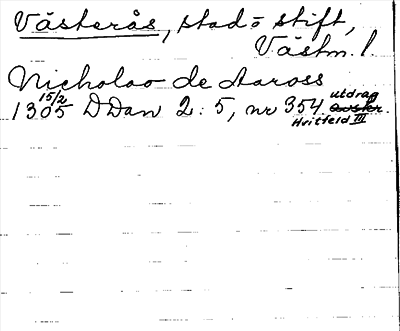 Västerås, stad o stift,
Västm. l.
Nicholao de Aaross
1305 15/2 DDan 2:5, nr 354 utdrag avskr.
Hvitfeld III